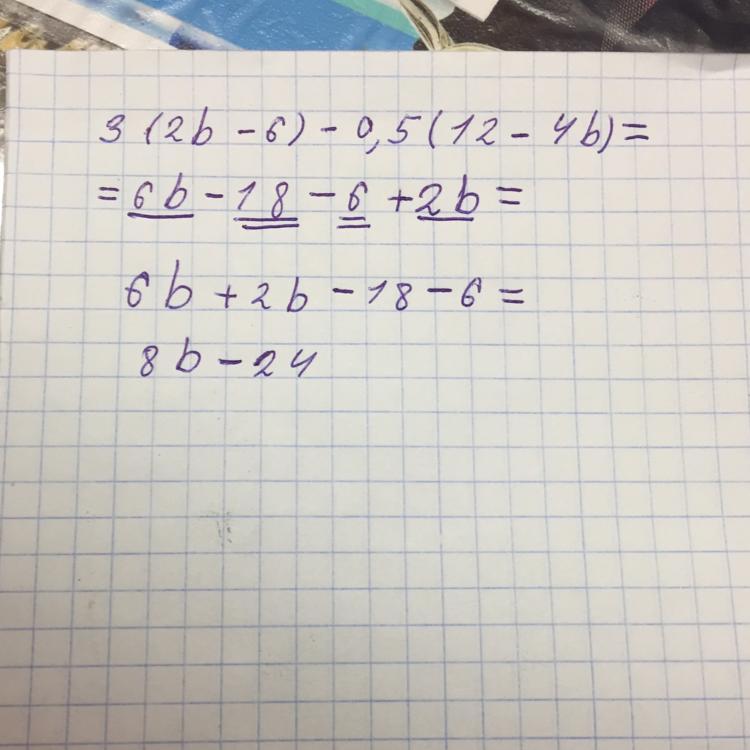 3 (2b - 6) - 0,5 (12 - 4b) =
= 6b - 18 - 6 + 2b =
6b + 2b - 18 - 6 =
8b - 24